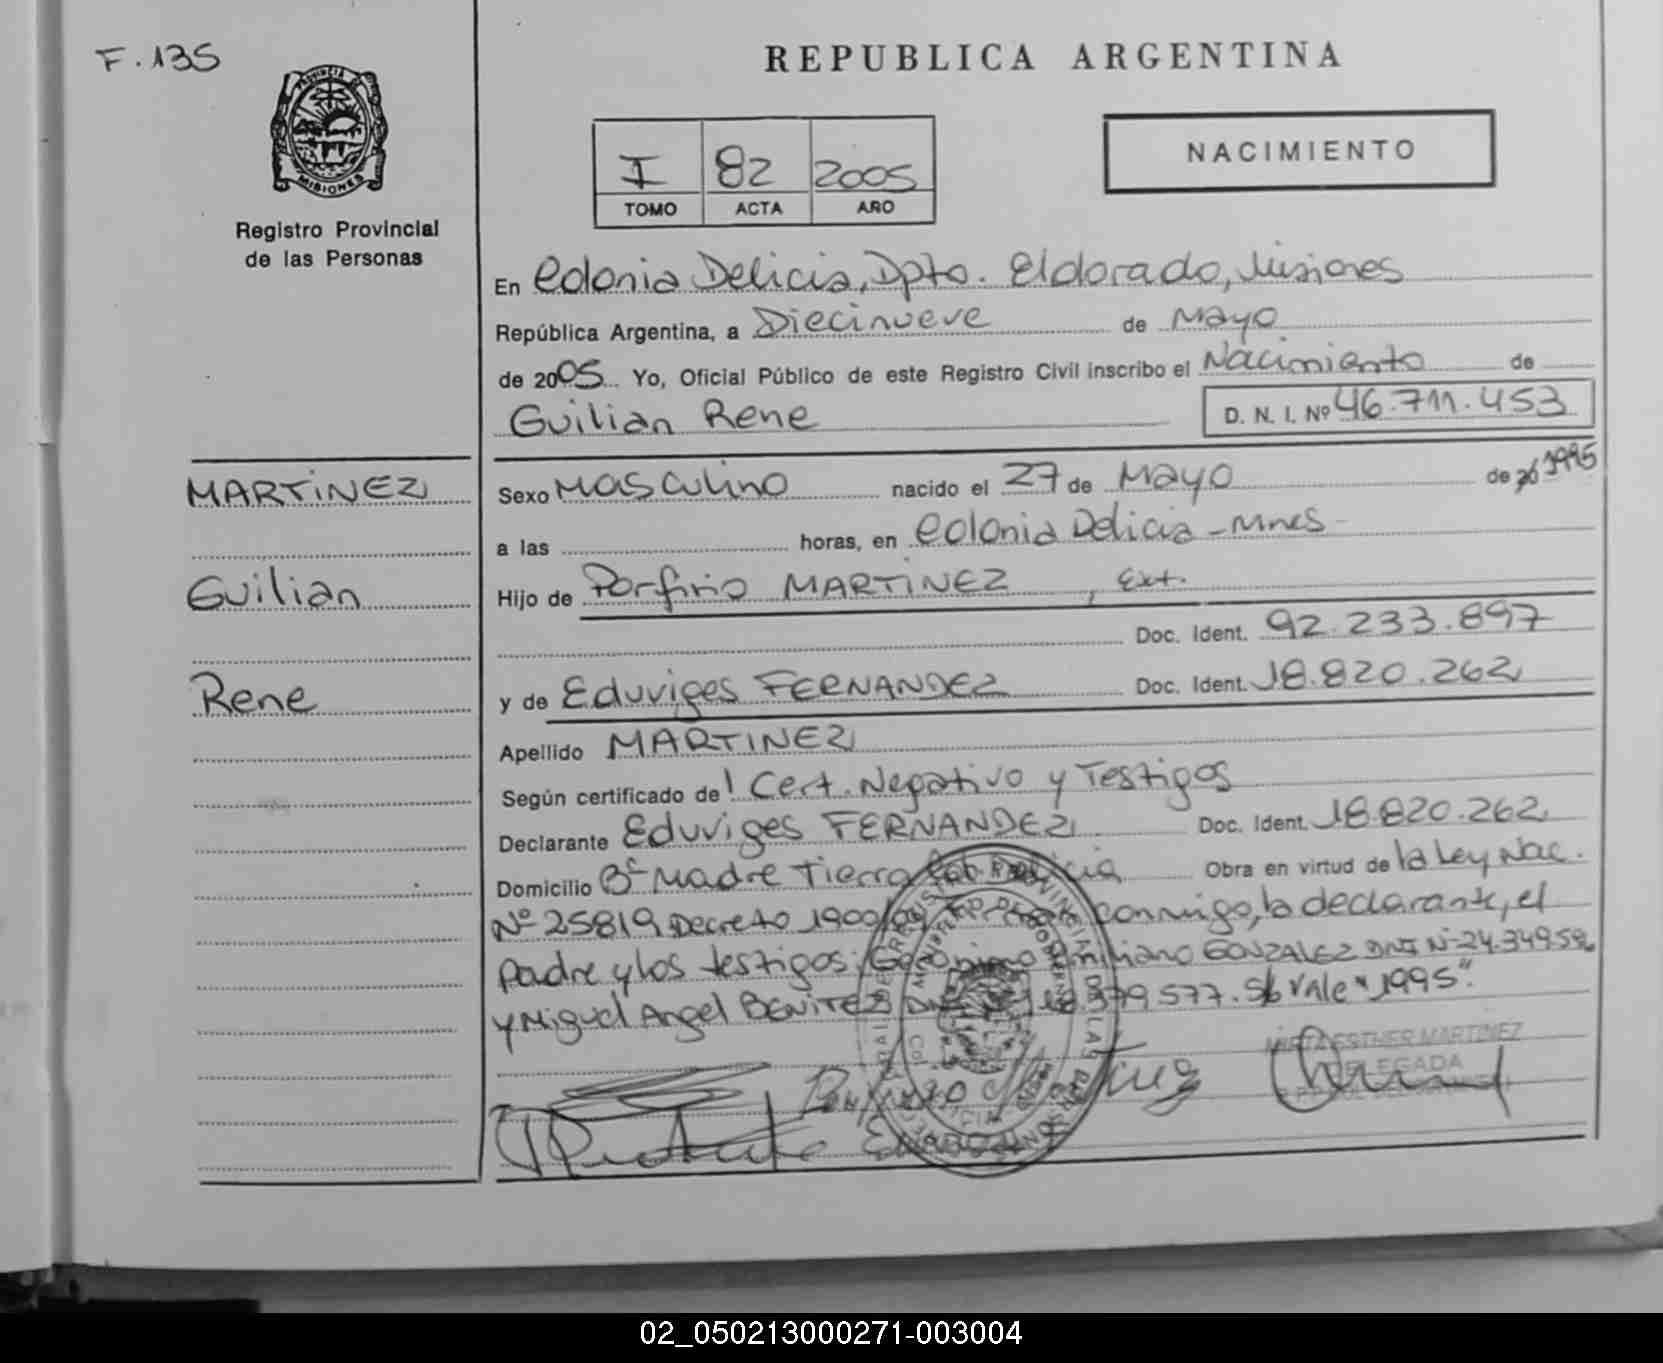 F. 135
REPUBLICA ARGENTINA
PROVINCIA DE
MISIONES
I 82 2005
TOMO ACTA AÑO
NACIMIENTO
Registro Provincial
de las Personas
En Colonia Delicia, Dpto. Eldorado, Misiones
República Argentina, a Diecinueve de Mayo
de 2005 Yo, Oficial Público de este Registro Civil inscribo el Nacimiento de
Guilian Rene D. N. I. Nº 46.711.453
MARTINEZ
Sexo Masculino nacido el 27 de Mayo de 1995
a las horas, en Colonia Delicia - Mnes -
Guilian
Hijo de Porfirio MARTINEZ, Ext.
Doc. Ident. 92.233.897
Rene
y de Eduviges FERNANDEZ Doc. Ident. 18.820.262
Apellido MARTINEZ
Según certificado de Cert. Negativo y Testigos
Declarante Eduviges FERNANDEZ Doc. Ident. 18.820.262
Domicilio Bº Madre Tierra Col. Delicia Obra en virtud de la Ley Nac.
Nº 25819 Decreto 1900/04 conmigo, la declarante, el
padre y los testigos: Emiliano GONZALEZ DNI Nº 24.349.59
y Miguel Angel BENITEZ 379577. S/b Vale "1995".
MIRTA ESTHER MARTINEZ
DELEGADA
02_050213000271-003004